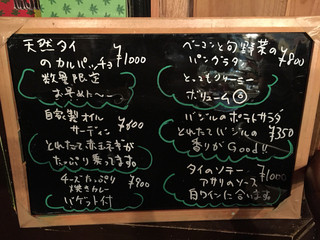 天然タイ
のカルパッチョ ¥1000
数量限定
お早めに〜
自家製オイル
サーディン ¥600
とれたて赤玉ネギが
たっぷり乗ってます。
チーズたっぷり
焼きカレー ¥900
バケット付
ベーコンと旬野菜の
パングラタン ¥800
とってもクリーミー
ボリューム◎
バジルのポテトサラダ
とれたてバジルの ¥350
香りがGood!!
タイのソテー ¥1000
アサリのソース
白ワインに合います。